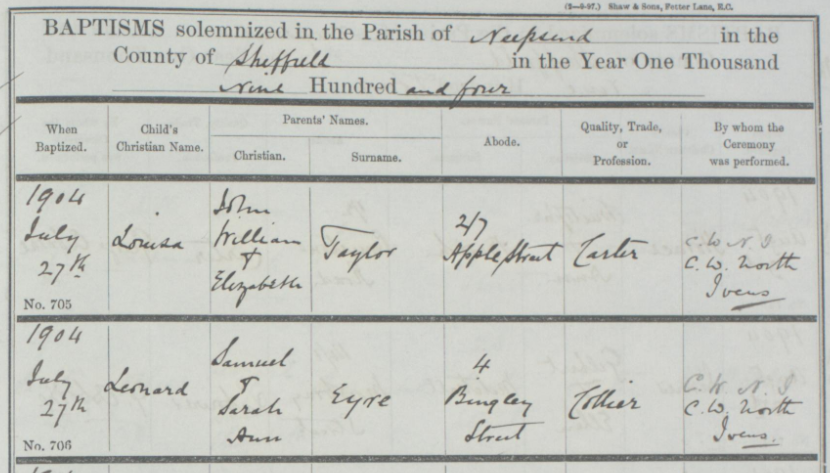 (2—9-97.) Shaw & Sons, Fetter Lane, E.C.
BAPTISMS solemnized in the Parish of Neepsend in the
County of Sheffield in the Year One Thousand
Nine Hundred and four
When Baptized.
Child's Christian Name.
Parents' Names.
Christian.
Surname.
Abode.
Quality, Trade, or Profession.
By whom the Ceremony was performed.
1904
July
27th
No. 705
Louisa
John
William
&
Elizabeth
Taylor
2/7
Apple Street
Carter
C. W. N. I
C. W. North
Ivens
1904
July
27th
No. 706
Leonard
Samuel
&
Sarah
Ann
Eyre
4
Bingley
Street
Collier
C. W. N. I
C. W. North
Ivens.